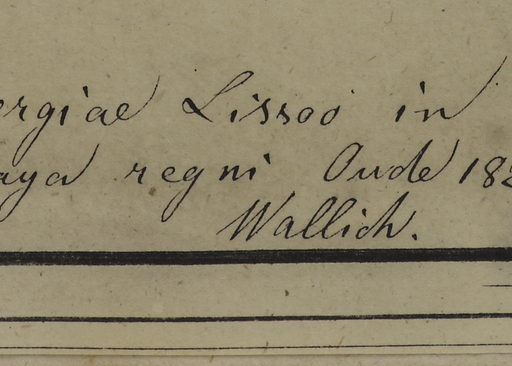 ergiae Lissoo in
aya regni Oude 182
Wallich.